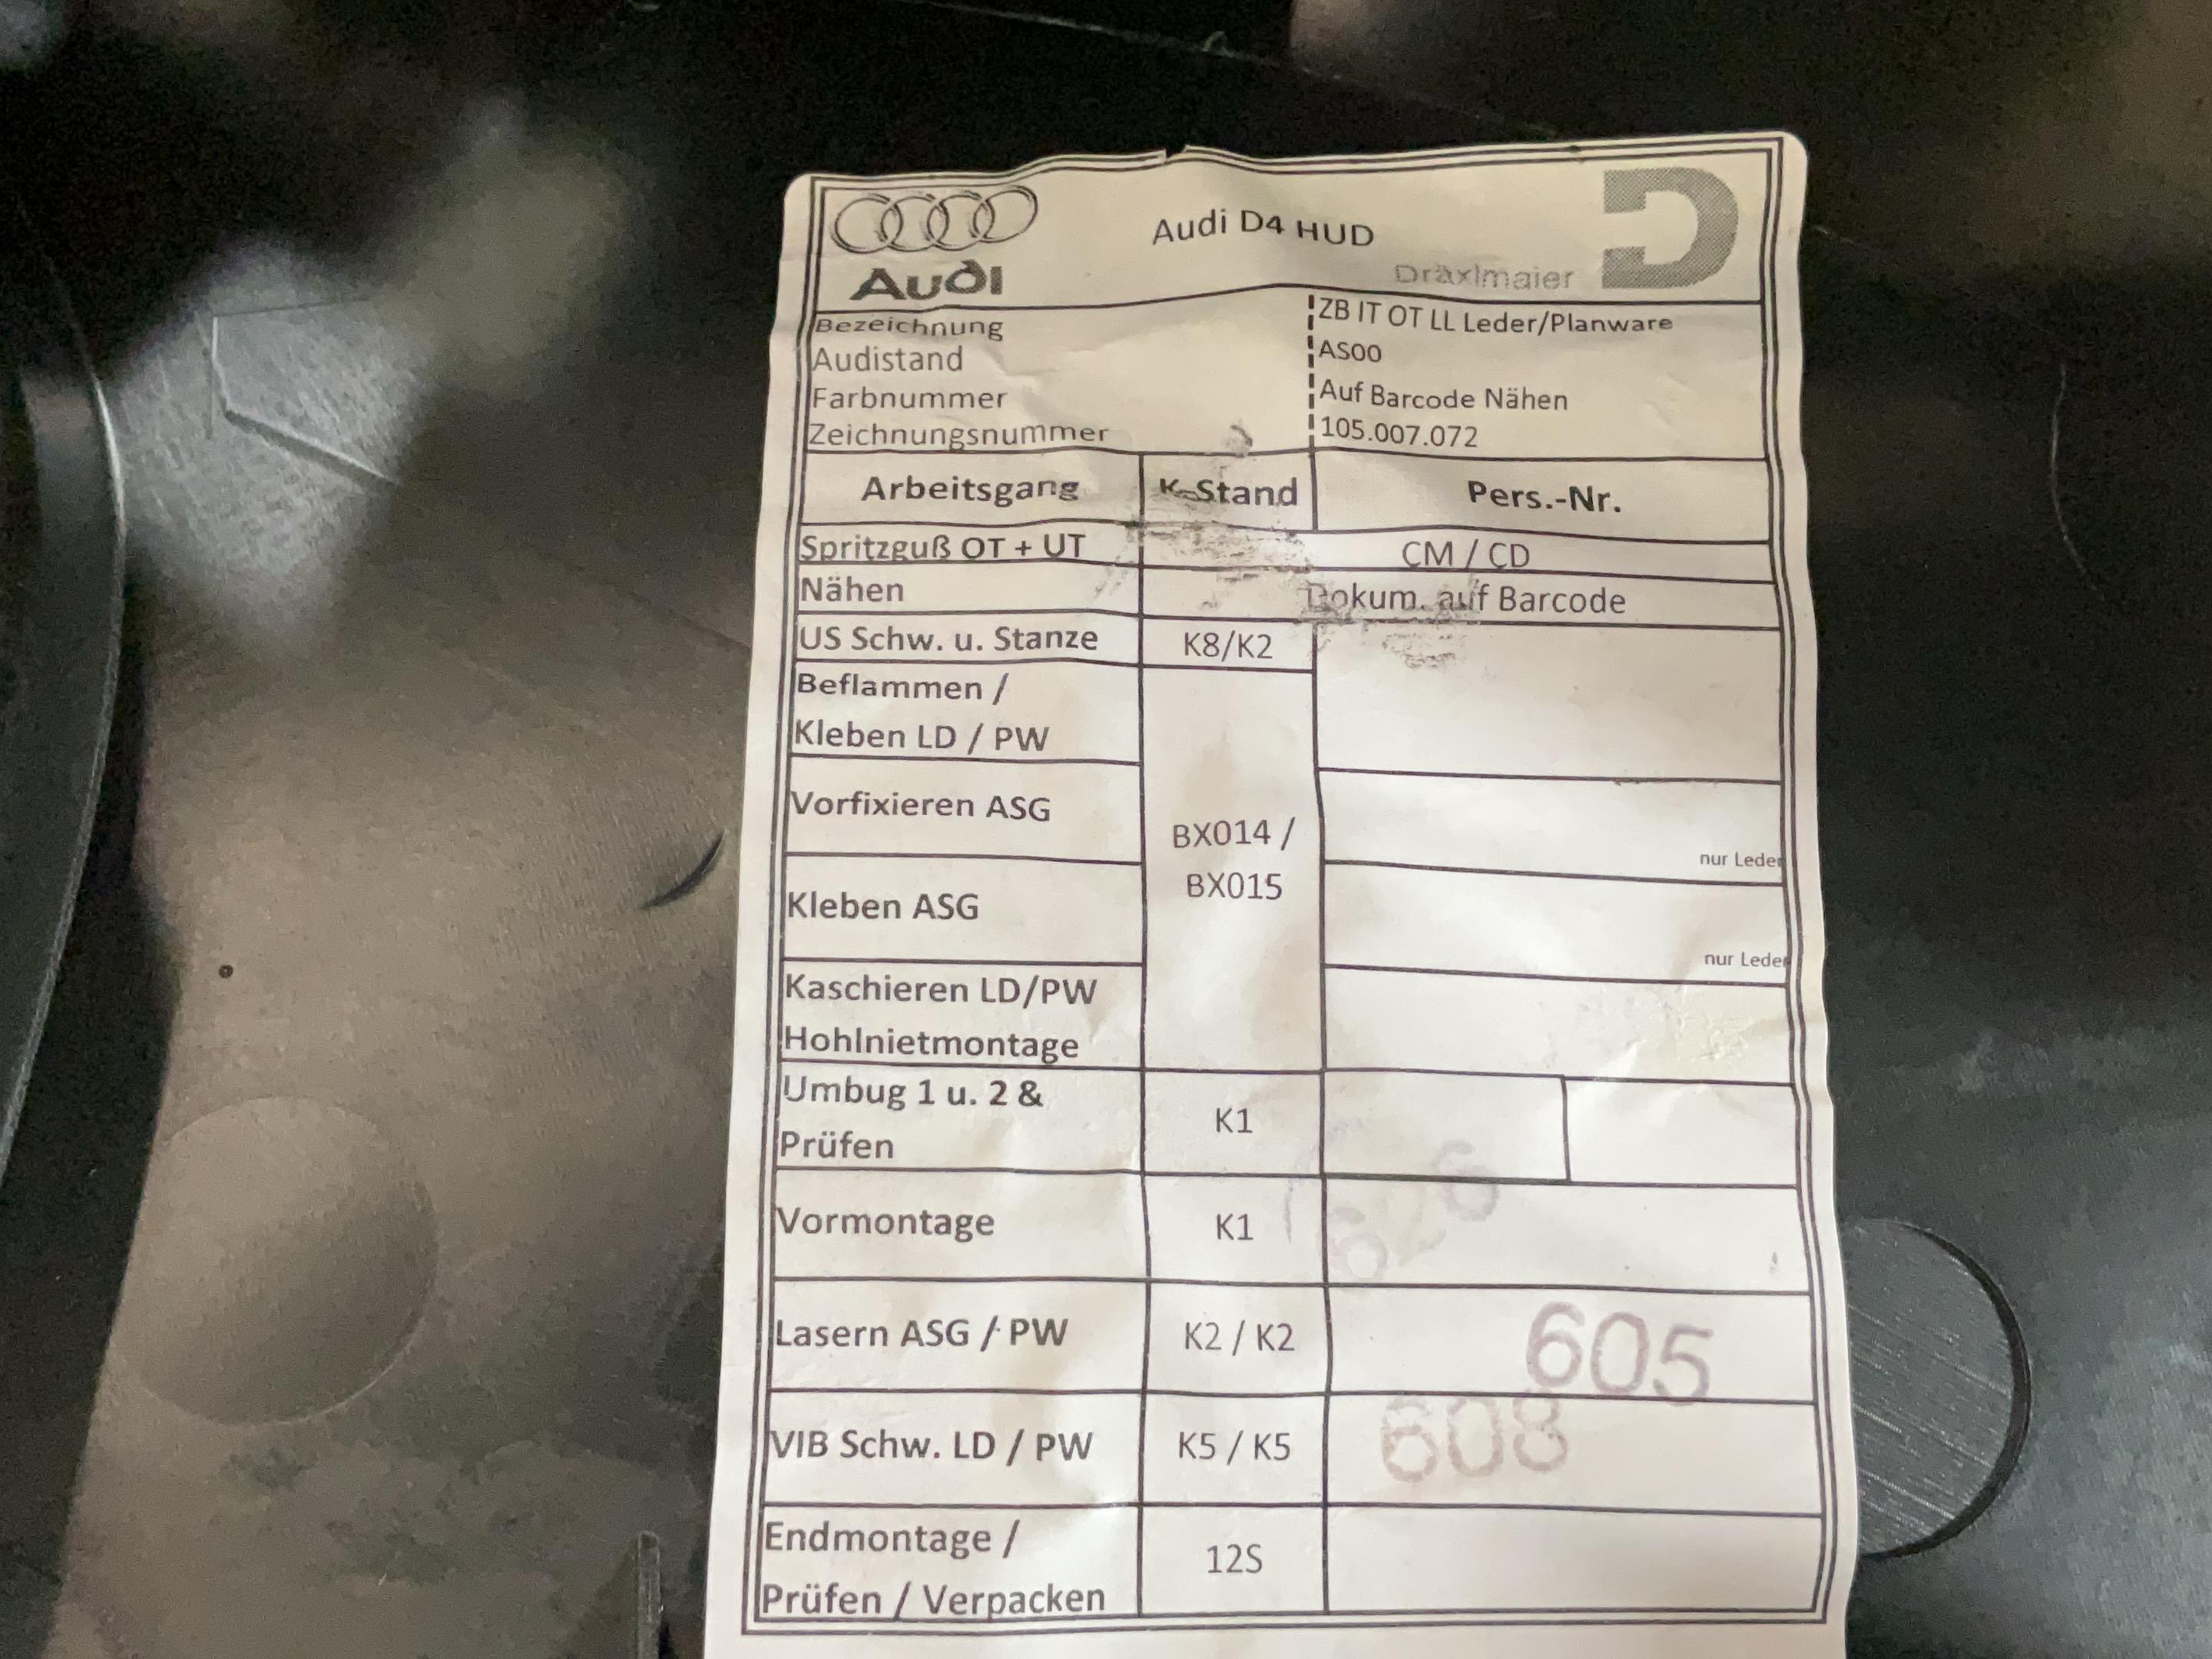 Audi
Audi D4 HUD
Dräxlmaier
Bezeichnung ZB IT OT LL Leder/Planware
Audistand AS00
Farbnummer Auf Barcode Nähen
Zeichnungsnummer 105.007.072
Arbeitsgang K-Stand Pers.-Nr.
Spritzguß OT + UT CM / CD
Nähen Dokum. auf Barcode
US Schw. u. Stanze K8/K2
Beflammen /
Kleben LD / PW
Vorfixieren ASG
BX014 /
nur Leder
BX015
Kleben ASG
nur Leder
Kaschieren LD/PW
Hohlnietmontage
Umbug 1 u. 2 &
Prüfen
K1
Vormontage K1
626
Lasern ASG / PW K2 / K2 605
VIB Schw. LD / PW K5 / K5 608
Endmontage /
Prüfen / Verpacken
12S